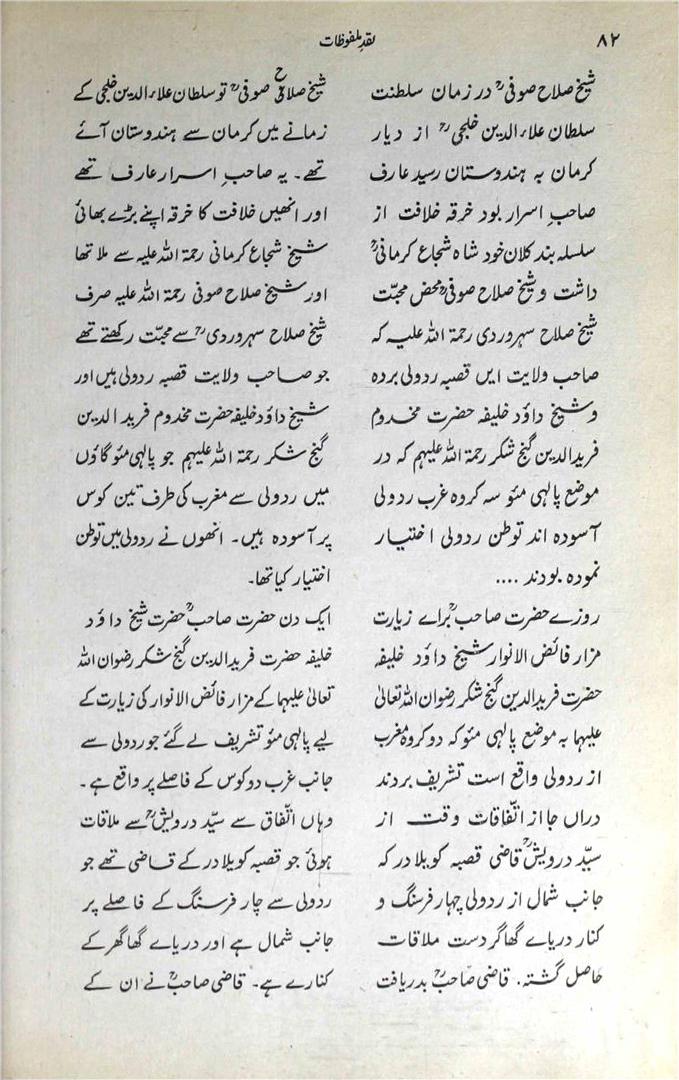 ۸۲
نقدِ ملفوظات
شیخ صلاح صوفیؒ در زمان سلطنت
سلطان علاء الدین خلجیؒ از دیار
کرمان به هندوستان رسید عارف
صاحبِ اسرار بود خرقہ خلافت از
سلسلہ بند کلان خود شاہ شجاع کرمانیؒ
داشت و شیخ صلاح صوفیؒ محض محبّت
شیخ صلاح سہروردی رحمۃ اللہ علیہ کہ
صاحب ولایت ایں قصبہ ردولی بردہ
و شیخ داؤد خلیفہ حضرت مخدوم
فریدالدین گنج شکر رحمۃ اللہ علیہم کہ در
موضع پالہی مئو سہ کروہ غرب ردولی
آسودہ اند توطن ردولی اختیار
نمودہ بودند ....
روزے حضرت صاحبؒ براے زیارت
مزار فائض الانوار شیخ داؤد خلیفہ
حضرت فریدالدین گنج شکر رضوان اللہ تعالیٰ
علیہما بہ موضع پالہی مئو کہ دو کروہ مغرب
از ردولی واقع است تشریف بردند
دراں جا از اتّفاقات وقت از
سیّد درویشؒ قاضی قصبہ کویلادر کہ
جانب شمال از ردولی چہار فرسنگ و
کنار دریاے گھاگر دست ملاقات
حاصل گشتہ. قاضی صاحبؒ بدریافت
شیخ صلاح صوفیؒ تو سلطان علاء الدین خلجی کے
زمانے میں کرمان سے ہندوستان آئے
تھے۔ یہ صاحبِ اسرار عارف تھے
اور انھیں خلافت کا خرقہ اپنے بڑے بھائی
شیخ شجاع کرمانی رحمۃ اللہ علیہ سے ملا تھا
اور شیخ صلاح صوفی رحمۃ اللہ علیہ صرف
شیخ صلاح سہروردیؒ سے محبّت رکھتے تھے
جو صاحب ولایت قصبہ ردولی ہیں اور
شیخ داؤد خلیفہ حضرت مخدوم فرید الدین
گنج شکر رحمۃ اللہ علیہم جو پالہی مئو گاؤں
میں ردولی سے مغرب کی طرف تین کوس
پر آسودہ ہیں۔ انھوں نے ردولی میں توطن
اختیار کیا تھا۔
ایک دن حضرت صاحبؒ حضرت شیخ داؤد
خلیفہ حضرت فریدالدین گنج شکر رضوان اللہ
تعالیٰ علیہما کے مزار فائض الانوار کی زیارت کے
لیے پالہی مئو تشریف لے گئے جو ردولی سے
جانب غرب دو کوس کے فاصلے پر واقع ہے۔
وہاں اتّفاق سے سیّد درویشؒ سے ملاقات
ہوئی جو قصبہ کویلا در کے قاضی تھے جو
ردولی سے چار فرسنگ کے فاصلے پر
جانب شمال ہے اور دریاے گھاگھر کے
کنارے ہے۔ قاضی صاحبؒ نے ان کے